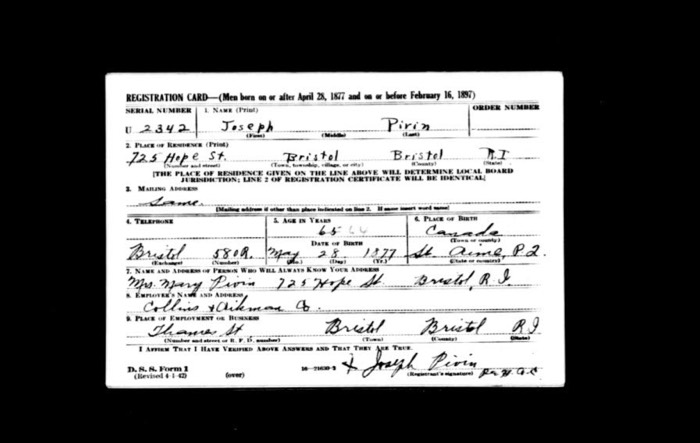 REGISTRATION CARD—(Men born on or after April 28, 1877 and on or before February 16, 1897)
SERIAL NUMBER 1. NAME (Print) ORDER NUMBER
U 2342 Joseph Pivin
(First) (Middle) (Last)
2. PLACE OF RESIDENCE (Print)
725 Hope St. Bristol Bristol R.I
(Number and street) (Town, township, village, or city) (County) (State)
[THE PLACE OF RESIDENCE GIVEN ON THE LINE ABOVE WILL DETERMINE LOCAL BOARD
JURISDICTION; LINE 2 OF REGISTRATION CERTIFICATE WILL BE IDENTICAL]
3. MAILING ADDRESS
Same
[Mailing address if other than place indicated on line 2. If same insert word same]
4. TELEPHONE 5. AGE IN YEARS 6. PLACE OF BIRTH
65 Canada
DATE OF BIRTH (Town or county)
Bristol 580R. May 28 1877 St. Aime, P.Q.
(Exchange) (Number) (Mo.) (Day) (Yr.) (State or country)
7. NAME AND ADDRESS OF PERSON WHO WILL ALWAYS KNOW YOUR ADDRESS
Mrs. Mary Pivin 725 Hope St. Bristol, R.I.
8. EMPLOYER'S NAME AND ADDRESS
Collins & Aikman Co.
9. PLACE OF EMPLOYMENT OR BUSINESS
Thames St Bristol Bristol R.I
(Number and street or R. F. D. number) (Town) (County) (State)
I AFFIRM THAT I HAVE VERIFIED ABOVE ANSWERS AND THAT THEY ARE TRUE.
D. S. S. Form 1 Joseph Pivin
(Revised 4-1-42) (over) (Registrant's signature)